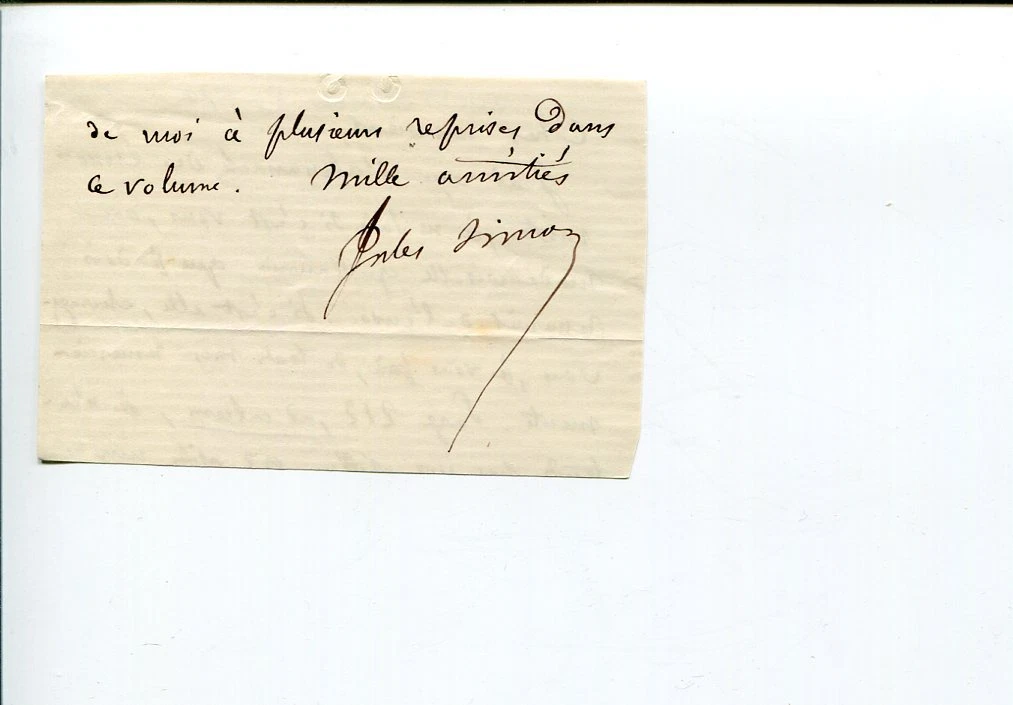 de moi à plusieurs reprises dans
ce volume. Mille amitiés
Jules Simon